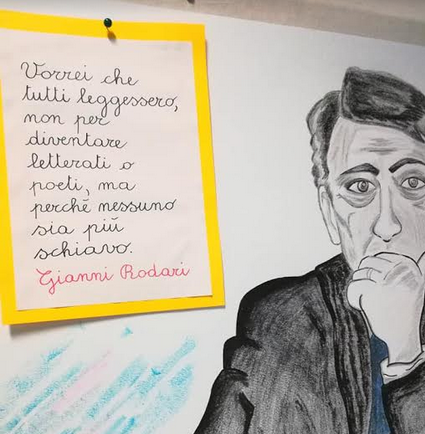 Vorrei che
tutti leggessero,
non per
diventare
letterati o
poeti, ma
perché nessuno
sia più
schiavo.
Gianni Rodari